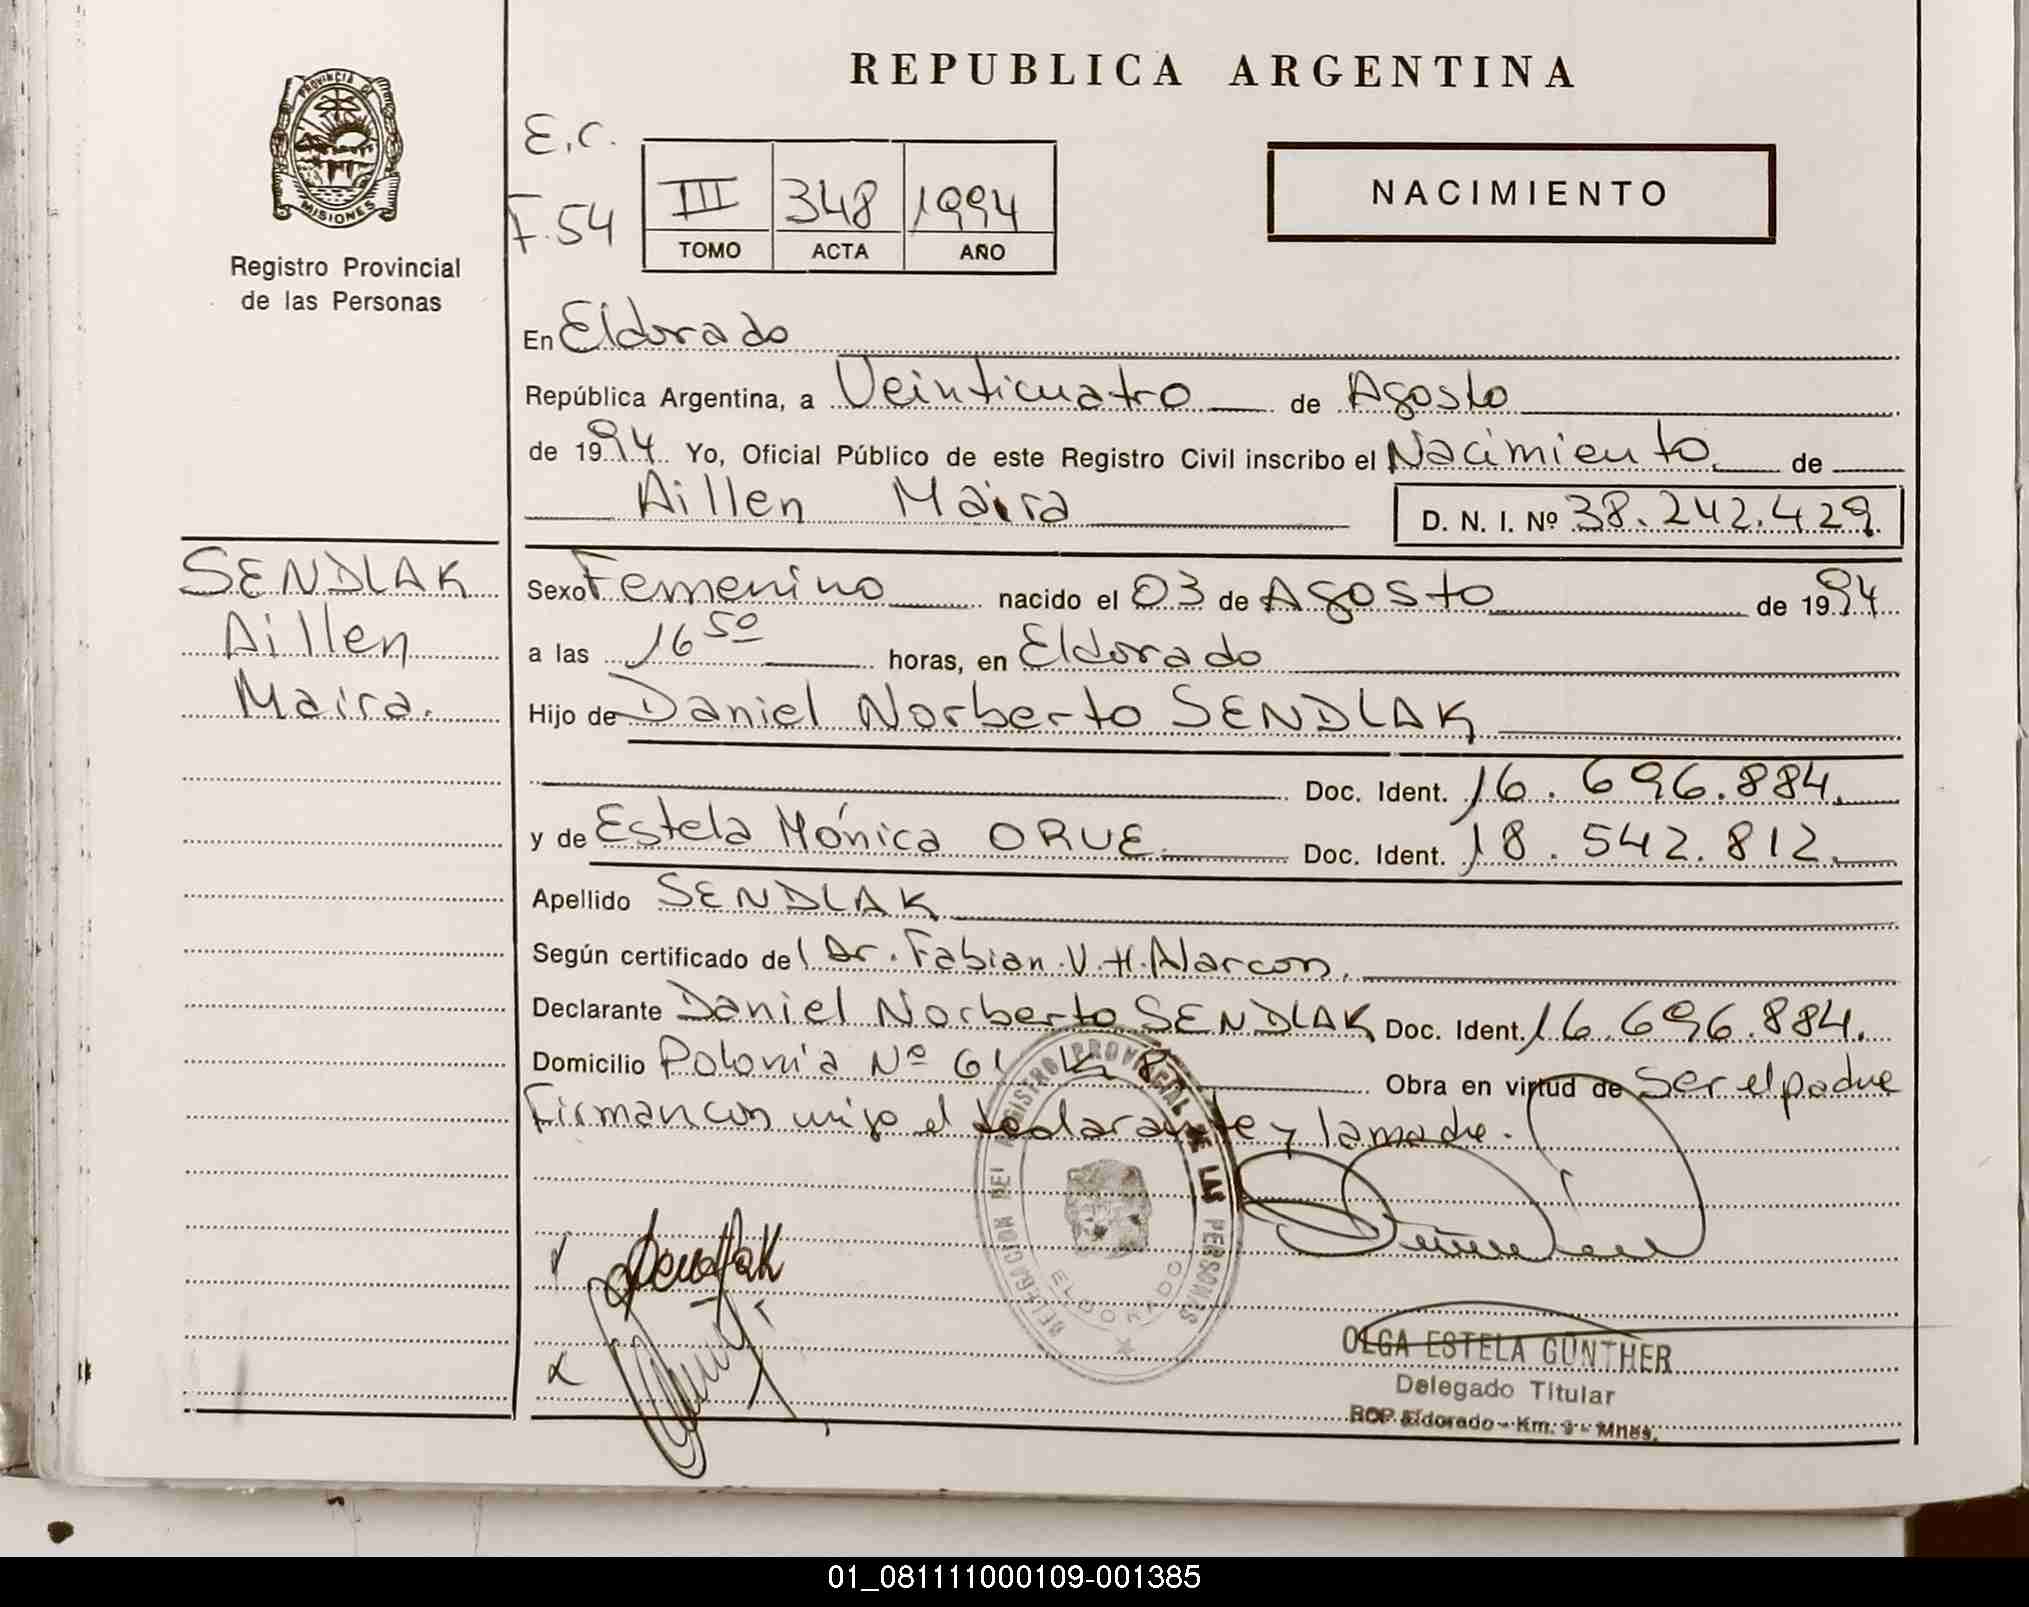 REPUBLICA ARGENTINA
PROVINCIA DE
MISIONES
Registro Provincial
de las Personas
E.C.
F.54
III 348 1994
TOMO ACTA AÑO
NACIMIENTO
En Eldorado
República Argentina, a Veinticuatro de Agosto
de 1994. Yo, Oficial Público de este Registro Civil inscribo el Nacimiento de
Aillen Maira D. N. I. Nº 38.242.429.
SENDLAK
Aillen
Maira.
Sexo Femenino nacido el 03 de Agosto de 1994
a las 16 50 horas, en Eldorado
Hijo de Daniel Norberto SENDLAK
Doc. Ident. 16.696.884.
y de Estela Mónica ORUE Doc. Ident. 18.542.812.
Apellido SENDLAK
Según certificado del Dr. Fabian V. H. Alarcon.
Declarante Daniel Norberto SENDLAK Doc. Ident. 16.696.884.
Domicilio Polonia Nº 61 K. 8 Obra en virtud de Ser el padre
Firman con migo el declarante y la madre.
DELEGACION DEL REGISTRO PROVINCIAL DE LAS PERSONAS
ELDORADO
Sendlak
OLGA ESTELA GÜNTHER
Delegado Titular
RCP. Eldorado - Km. 9 - Mnes.
01_081111000109-001385